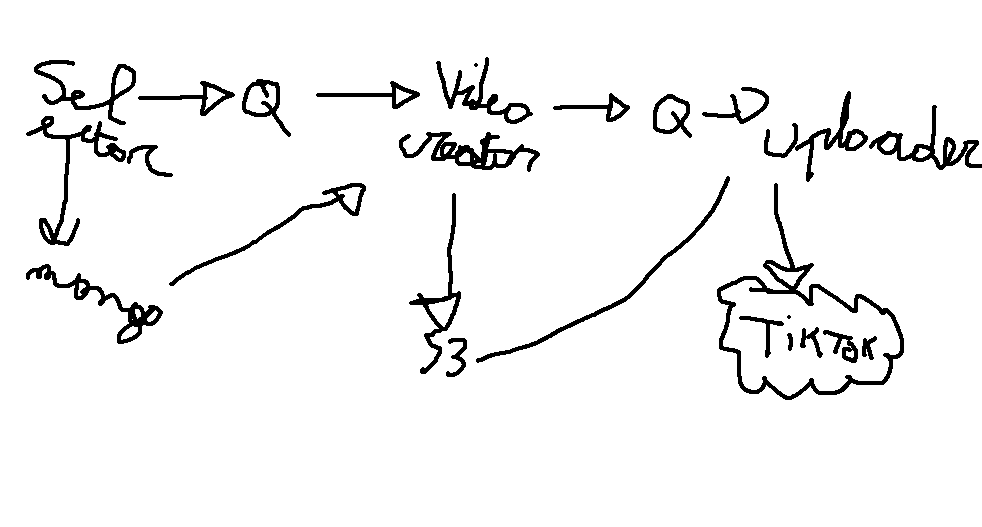 Sel
ector
Q
Video
creator
Q
uploader
mongo
S3
TikTok